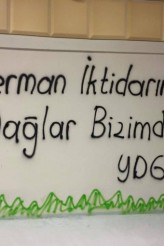 erman İktidarın
Dağlar Bizimd
YDG